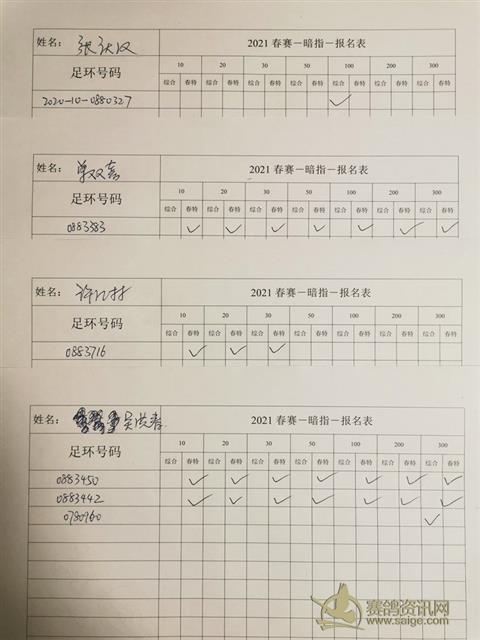 姓名： 张 2021 春赛－暗指－报名表
足环号码 10 20 30 50 100 200 300
综合 春特 综合 春特 综合 春特 综合 春特 综合 春特 综合 春特 综合 春特
2020-10-0880327 ✓
姓名： 单双喜 2021 春赛－暗指－报名表
足环号码 10 20 30 50 100 200 300
综合 春特 综合 春特 综合 春特 综合 春特 综合 春特 综合 春特 综合 春特
0883583 ✓ ✓ ✓ ✓ ✓ ✓ ✓
姓名： 许 村 2021 春赛－暗指－报名表
足环号码 10 20 30 50 100 200 300
综合 春特 综合 春特 综合 春特 综合 春特 综合 春特 综合 春特 综合 春特
0883716 ✓ ✓ ✓
姓名： 吴 春 2021 春赛－暗指－报名表
足环号码 10 20 30 50 100 200 300
综合 春特 综合 春特 综合 春特 综合 春特 综合 春特 综合 春特 综合 春特
0883450 ✓ ✓ ✓ ✓ ✓ ✓ ✓
0883442 ✓ ✓ ✓ ✓ ✓ ✓ ✓
0780960 ✓
赛鸽资讯网
www.saige.com